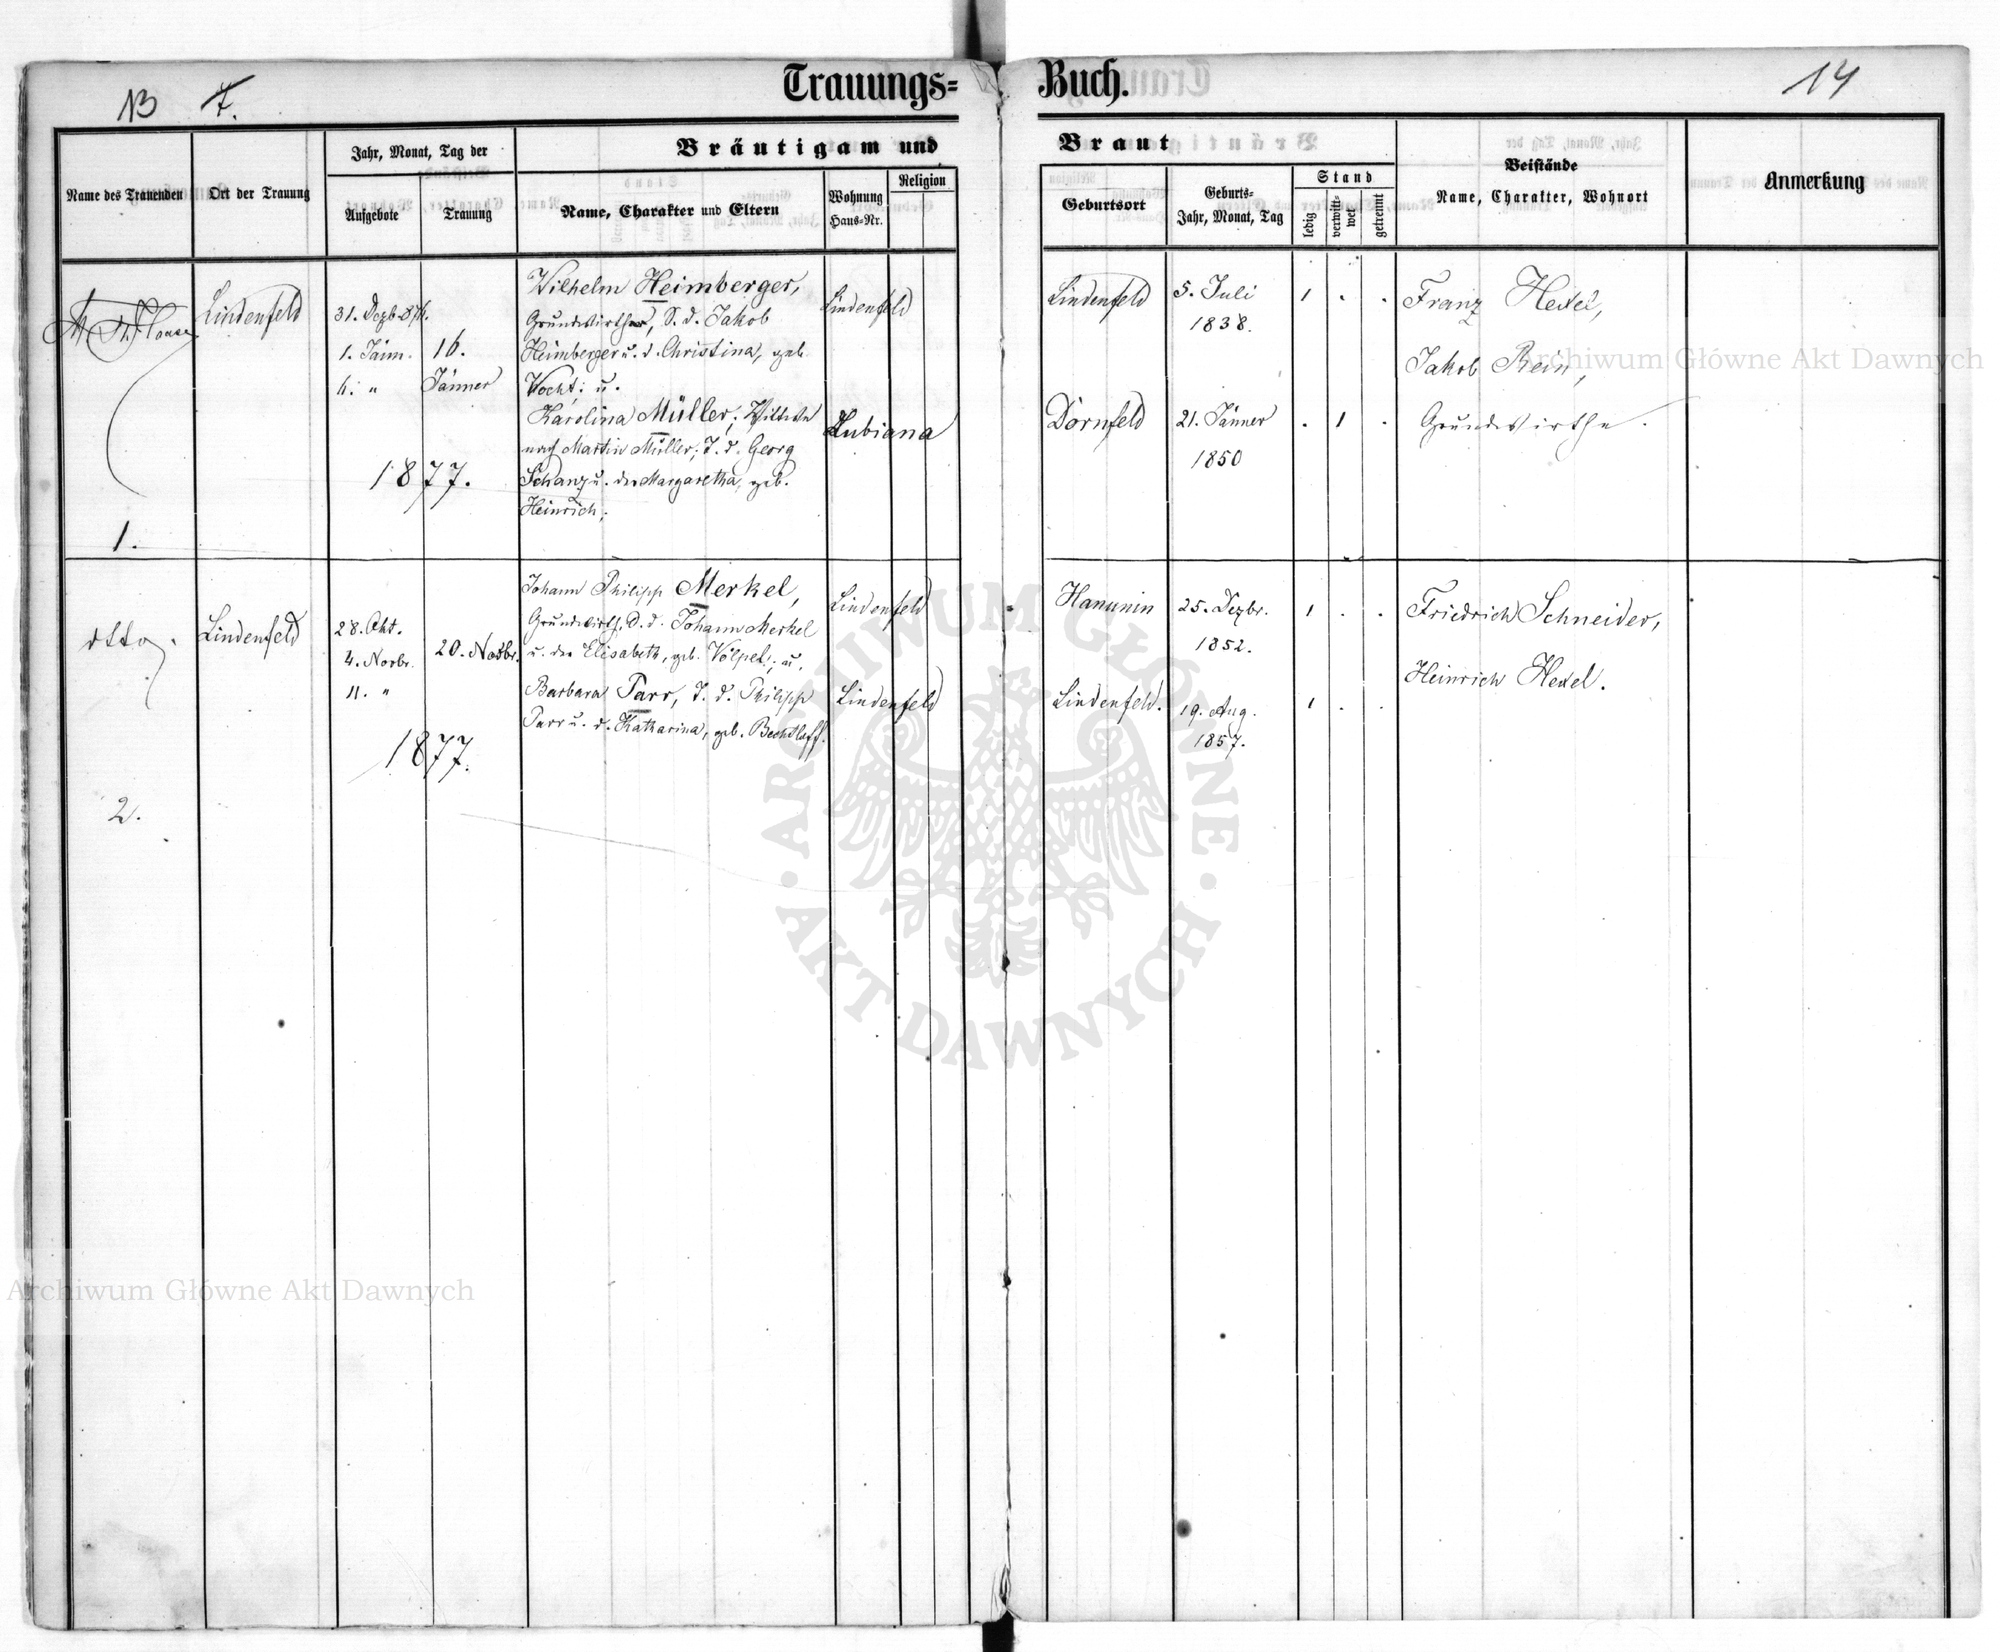 13 7.
Trauungs= Buch.
14
Name des Trauenden
Ort der Trauung
Jahr, Monat, Tag der
Aufgebote
Trauung
Bräutigam und
Name, Charakter und Eltern
Wohnung
Haus=Nr.
Religion
Braut
Geburtsort
Geburts=
Jahr, Monat, Tag
Stand
ledig
verwitt=
wet
getrennt
Beistände
Name, Charakter, Wohnort
Anmerkung
Lindenfeld
31. Dezb.
1. Jänn.
6. "
16.
Jänner
1877.
Wilhelm Heimberger,
S. d. Jakob
Heimberger u. d. Christina, geb.
Kocht; u.
Karolina Müller; Wittwe
nach Martin Müller; T. d. Georg
Schanz u. der Margaretha, geb.
Heinrich;
Lindenfeld
Lubiana
Lindenfeld
5. Juli
1838.
1 . .
Dornfeld
21. Jänner
1850
. 1 .
Franz Hexel,
Jakob Rein,
Grundwirthe.
1.
dtto.
Lindenfeld
28. Okt.
4. Novbr.
11. "
20. Novbr.
1877.
Johann Philipp Merkel,
Grundwirth, S. d. Johann Merkel
u. der Elisabeth, geb. Völpel; u.
Barbara Parr, T. d. Philipp
Parr u. d. Katharina, geb. Bechtloff.
Lindenfeld
Lindenfeld
Hanunin
25. Dezbr.
1852.
1 . .
Lindenfeld.
19. Aug.
1857.
1 . .
Friedrich Schneider,
Heinrich Hexel.
2.
Archiwum Główne Akt Dawnych
ARCHIWUM GŁÓWNE
AKT DAWNYCH
Archiwum Główne Akt Dawnych